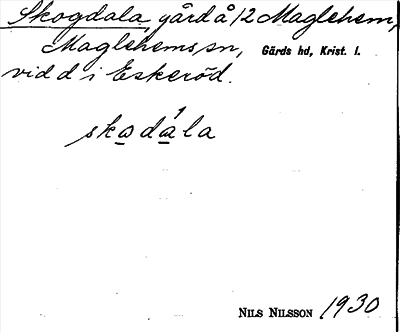 Skogdala, gård å 12 Maglehem,
Maglehems sn, Gärds hd, Krist. l.
vid d i Eskeröd.
skodála
NILS NILSSON 1930